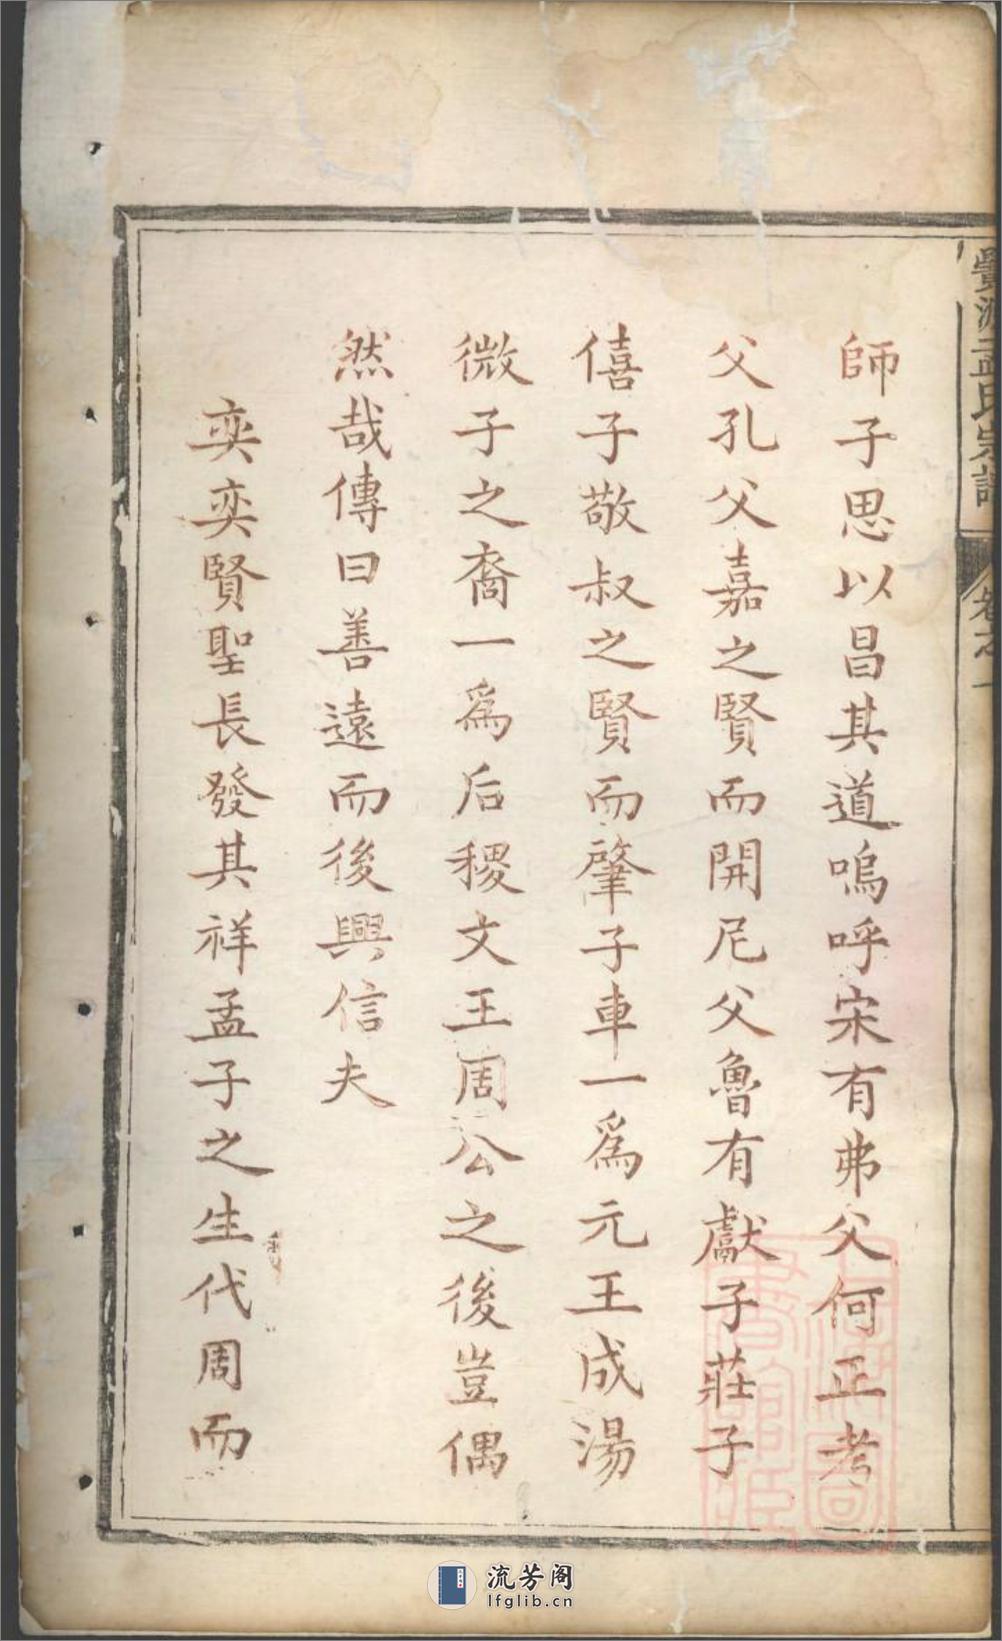 師子思以昌其道嗚呼宋有弗父何正考
父孔父嘉之賢而開尼父魯有獻子莊子
僖子敬叔之賢而肇子車一爲元王成湯
微子之裔一爲后稷文王周公之後豈偶
然哉傳曰善遠而後興信夫
奕奕賢聖長發其祥孟子之生代周而
孟氏宗譜
卷之一
流芳阁
lfglib.cn